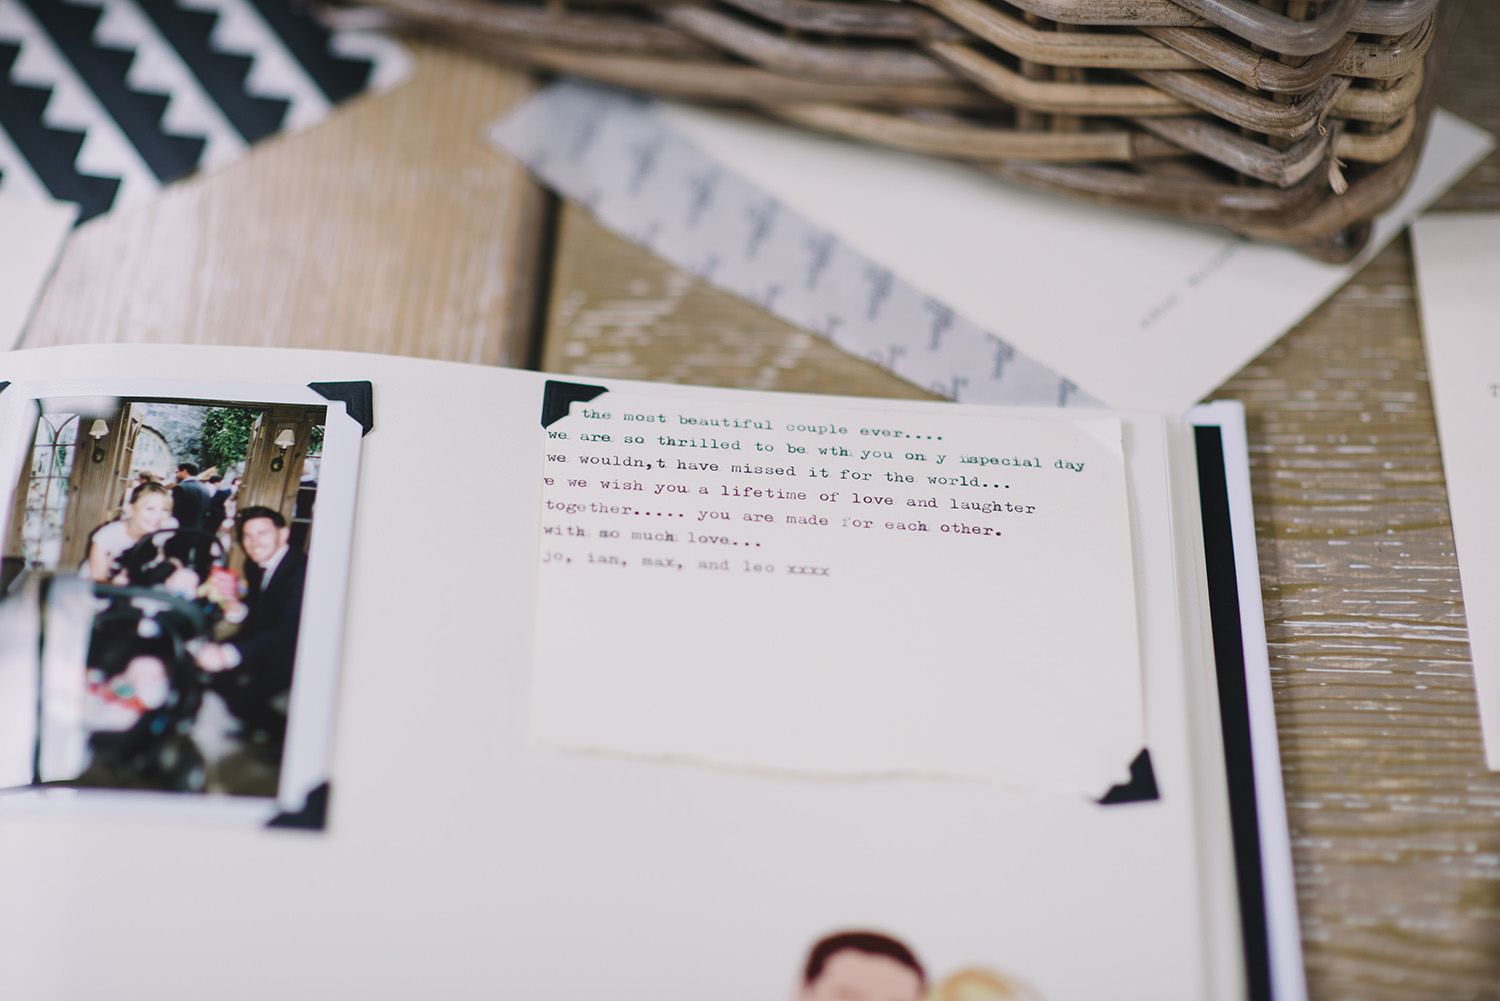 the most beautiful couple ever....
we are so thrilled to be wth you on y ispecial day
we wouldn,t have missed it for the world...
e we wish you a lifetime of love and laughter
together..... you are made for each other.
with so much love...
jo, ian, max, and leo xxxx